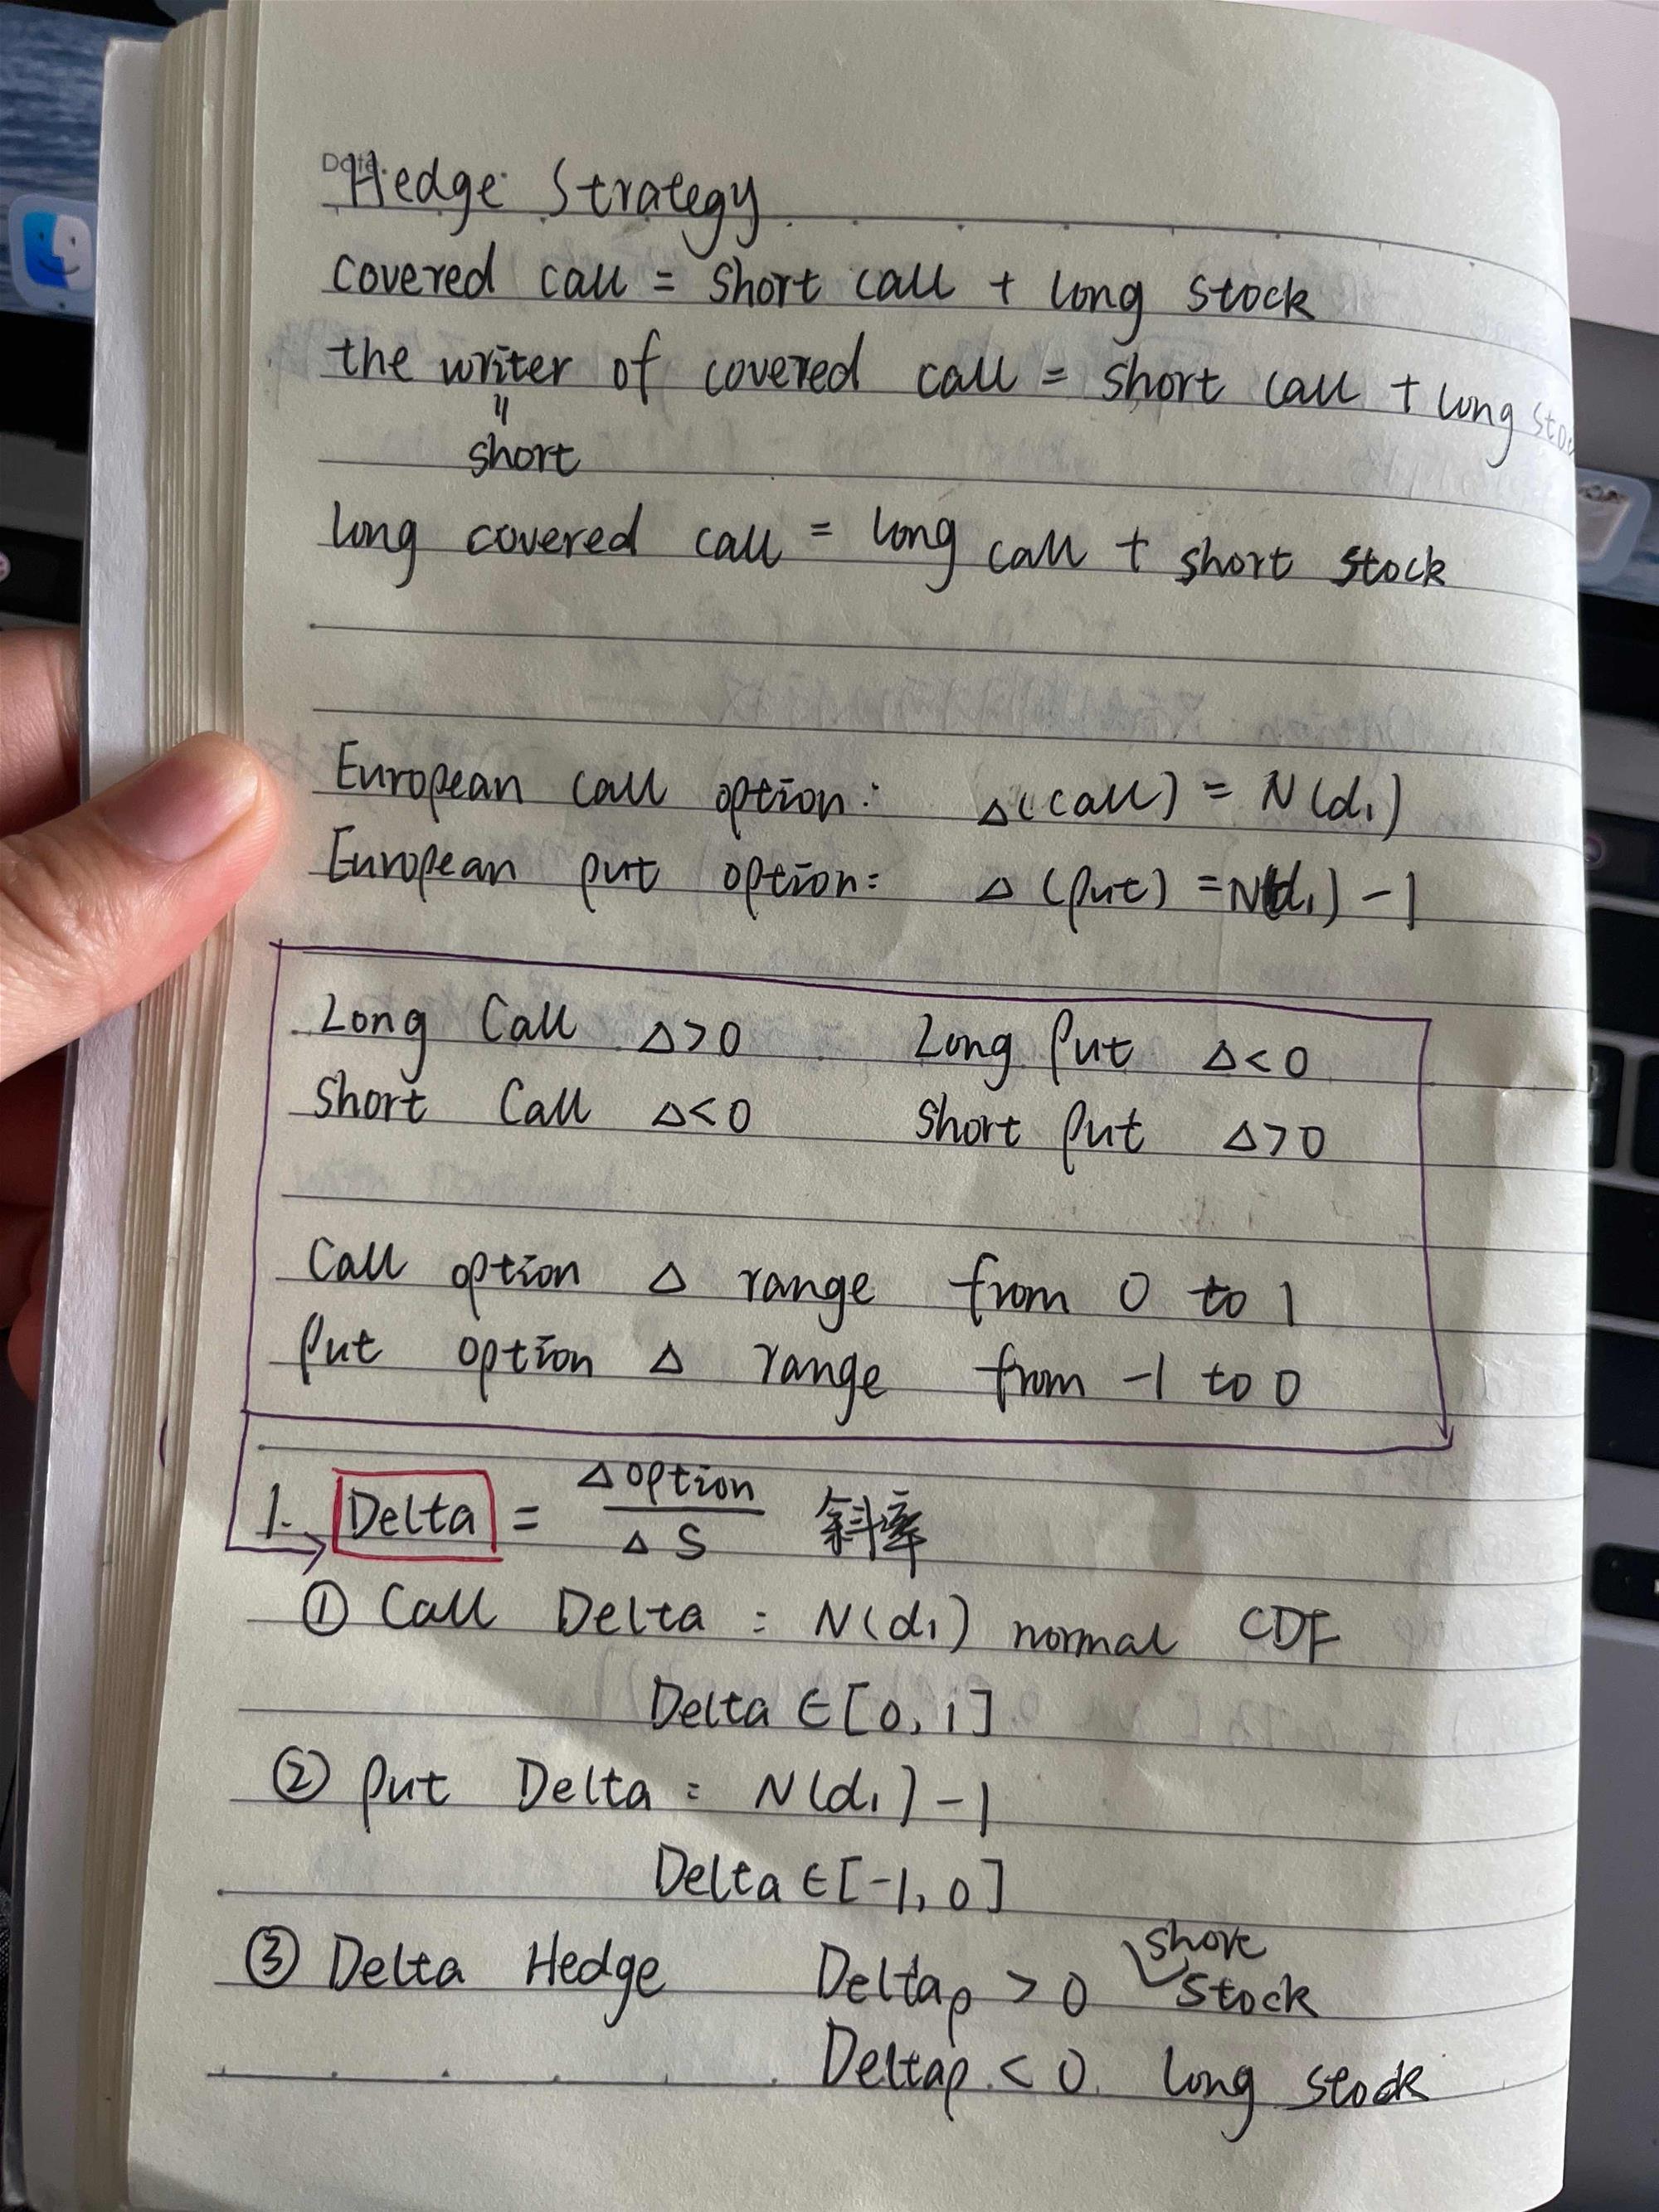 Date.
Hedge Strategy
covered call = short call + long stock
the writer of covered call = short call + long stoc
"
short
long covered call = long call + short stock
European call option: Δ(call) = N(d₁)
European put option: Δ(put) = N(d₁) - 1
Long Call Δ>0 Long Put Δ<0
Short Call Δ<0 Short Put Δ>0
Call option Δ range from 0 to 1
Put option Δ range from -1 to 0
1. Delta = Δoption / ΔS 斜率
① Call Delta : N(d₁) normal CDF
Delta ∈ [0, 1]
② Put Delta : N(d₁) - 1
Delta ∈ [-1, 0]
③ Delta Hedge Deltaₚ > 0 short stock
Deltaₚ < 0 long stock